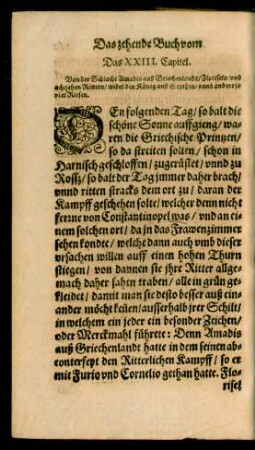 Das zehende Buch vom
Das XXIII. Capitel.
Von der Schlacht Amadis auß Griechenlandt / Florisels / vnd
achtzehen Rittern / wider den König auß Scythia / vnnd andere so
viel Riesen.
DEn folgenden Tag / so balt die
schöne Sonne auffgieng / wa-
ren die Griechische Printzen /
so da streiten solten / schon in
Harnisch geschloffen / zugerüstet / vnnd zu
Rossz / so balt der Tag jmmer daher brach /
vnnd ritten stracks dem ort zu / daran der
Kampff geschehen solte / welcher denn nicht
ferrne von Constantinopel was / vnd an ei-
nem solchen ort / da jn das Frawenzimmer
sehen kondte / welche dann auch vmb dieser
vrsachen willen auff einen hohen Thurn
stiegen / von dannen sie jhre Ritter allge-
mach daher sahen traben / alle in grün ge-
kleidet / damit man sie desto besser auß ein-
ander möcht keñen / ausserhalb jrer Schilt /
in welchem ein jeder ein besonder Zeichen /
oder Merckmahl führete: Denn Amadis
auß Griechenlandt hatte in dem seinen ab-
conterfeyt den Ritterlichen Kampff / so er
mit Furio vnd Cornelio gethan hatte. Flo-
risel